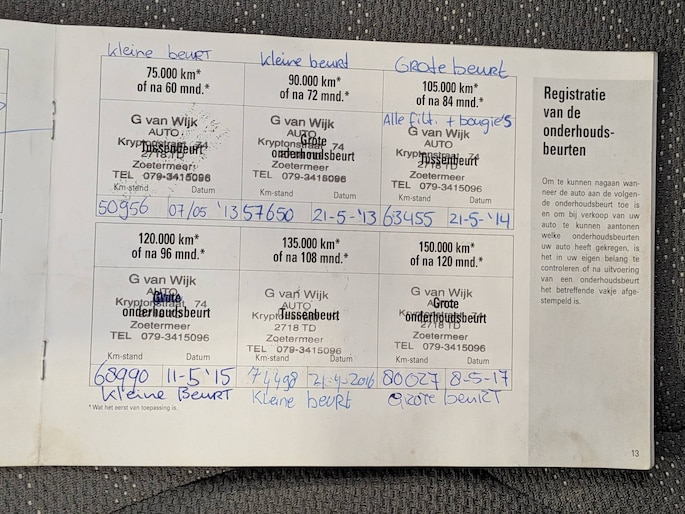 kleine beurt
75.000 km*
of na 60 mnd.*
G van Wijk
AUTO
Tussenbeurt
Kryptonstraat 74
2718 TD
Zoetermeer
TEL 079-3415096
Km-stand Datum
50956 07/05 '13
kleine beurt
90.000 km*
of na 72 mnd.*
G van Wijk
AUTO
Grote
onderhoudsbeurt
Kryptonstraat 74
2718 TD
Zoetermeer
TEL 079-3415096
Km-stand Datum
57650 21-5-'13
GROTE beurt
105.000 km*
of na 84 mnd.*
Alle filt. + bougie's
G van Wijk
AUTO
Tussenbeurt
Kryptonstraat 74
2718 TD
Zoetermeer
TEL 079-3415096
Km-stand Datum
63455 21-5-'14
120.000 km*
of na 96 mnd.*
G van Wijk
AUTO
Grote
onderhoudsbeurt
Kryptonstraat 74
Zoetermeer
TEL 079-3415096
Km-stand Datum
68990 11-5'15
kleine BeuRT
135.000 km*
of na 108 mnd.*
G van Wijk
AUTO
Tussenbeurt
74
2718 TD
Zoetermeer
TEL 079-3415096
Km-stand Datum
74498 21-4-2016
Kleine beurt
150.000 km*
of na 120 mnd.*
G van Wijk
AUTO
Grote
onderhoudsbeurt
Kryptonstraat 74
2718 TD
Zoetermeer
TEL 079-3415096
Km-stand Datum
80027 8-5-17
GROTE beuRT
* Wat het eerst van toepassing is.
Registratie
van de
onderhouds-
beurten
Om te kunnen nagaan wan-
neer de auto aan de volgen-
de onderhoudsbeurt toe is
en om bij verkoop van uw
auto te kunnen aantonen
welke onderhoudsbeurten
uw auto heeft gekregen, is
het in uw eigen belang te
controleren of na uitvoering
van een onderhoudsbeurt
het betreffende vakje afge-
stempeld is.
13